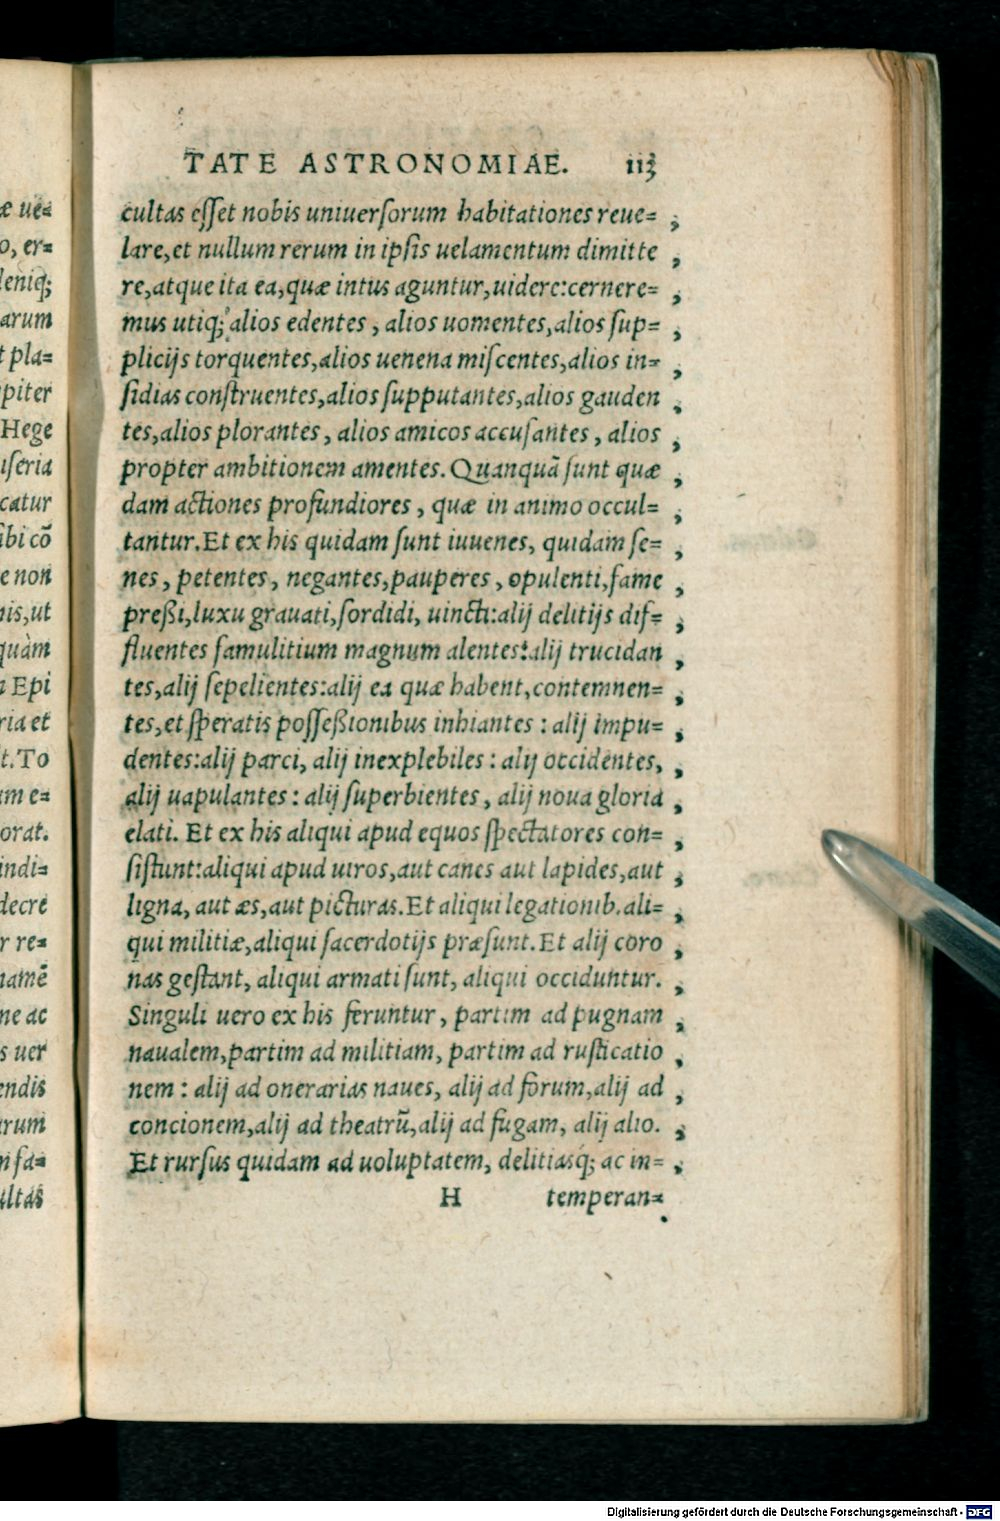 TATE ASTRONOMIAE. 113
cultas eſſet nobis uniuerſorum habitationes reue= ,
lare,et nullum rerum in ipſis uelamentum dimitte ,
re,atque ita ea,quæ intus aguntur,uidere:cernere= ,
mus utiq; alios edentes , alios uomentes,alios ſup= ,
plicijs torquentes,alios uenena miſcentes,alios in= ,
ſidias conſtruentes,alios ſupputantes,alios gauden ,
tes,alios plorantes , alios amicos accuſantes , alios ,
propter ambitionem amentes. Quanquã ſunt quæ ,
dam actiones profundiores , quæ in animo occul= ,
tantur.Et ex his quidam ſunt iuuenes, quidam ſe= ,
nes , petentes, negantes,pauperes, opulenti,fame ,
preßi,luxu grauati,ſordidi, uincti:alij delitijs dif= ,
fluentes famulitium magnum alentes:alij trucidan ,
tes,alij ſepelientes:alij ea quæ habent,contemnen= ,
tes,et ſperatis poſſeßionibus inhiantes : alij impu= ,
dentes:alij parci, alij inexplebiles : alij occidentes, ,
alij uapulantes : alij ſuperbientes, alij noua gloria ,
elati. Et ex his aliqui apud equos ſpectatores con= ,
ſiſtunt:aliqui apud uiros,aut canes aut lapides,aut ,
ligna, aut æs,aut picturas.Et aliqui legationib. ali= ,
qui militiæ,aliqui ſacerdotijs præſunt.Et alij coro ,
nas geſtant, aliqui armati ſunt, aliqui occiduntur. ,
Singuli uero ex his feruntur, partim ad pugnam ,
naualem,partim ad militiam, partim ad ruſticatio ,
nem : alij ad onerarias naues, alij ad forum,alij ad ,
concionem,alij ad theatrũ,alij ad fugam, alij alio. ,
Et rurſus quidam ad uoluptatem, delitiasq; ac in= ,
H temperan=
æ ue=
o, er=
deniq;
arum
t pla=
piter
Hege
iſeria
catur
ſibi cõ
e non
nis,ut
quàm
Epi
ria et
t.To
um e=
orat.
indi=
decre
r re=
namẽ
ne ac
s uer
endis
arum
n fa=
ultas
Digitalisierung gefördert durch die Deutsche Forschungsgemeinschaft - DFG